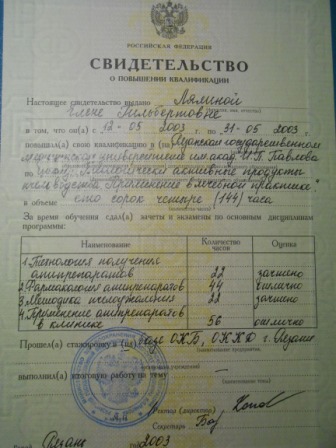 РОССИЙСКАЯ ФЕДЕРАЦИЯ
СВИДЕТЕЛЬСТВО
О ПОВЫШЕНИИ КВАЛИФИКАЦИИ
Настоящее свидетельство выдано Ляминой
Елене Гильбертовне
в том, что он(а) с 12-05 2003 г. по 31-05 2003 г.
повышал(а) свою квалификацию в (на) Рязанском государственном
Медицинском университете им. акад. И.П. Павлова
по циклу "Биологически активные продукты
пчеловодства. Применение в лечебной практике"
в объеме сто сорок четыре (144) часа
За время обучения сдал(а) зачеты и экзамены по основным дисциплинам
программы:
Наименование Количество часов Оценка
1 Технология получения
апипрепаратов 22 зачтено
2. Фармакология апипрепаратов 44 отлично
3. Методика пчелоужаления 22 зачтено
4 Применение апипрепаратов
в клинике 56 отлично
Прошел(а) стажировку в (на) базе ОКБ, ОККД г. Рязани
выполнил(а) итоговую работу на тему
Ректор (директор)
Секретарь
Рязань 2003